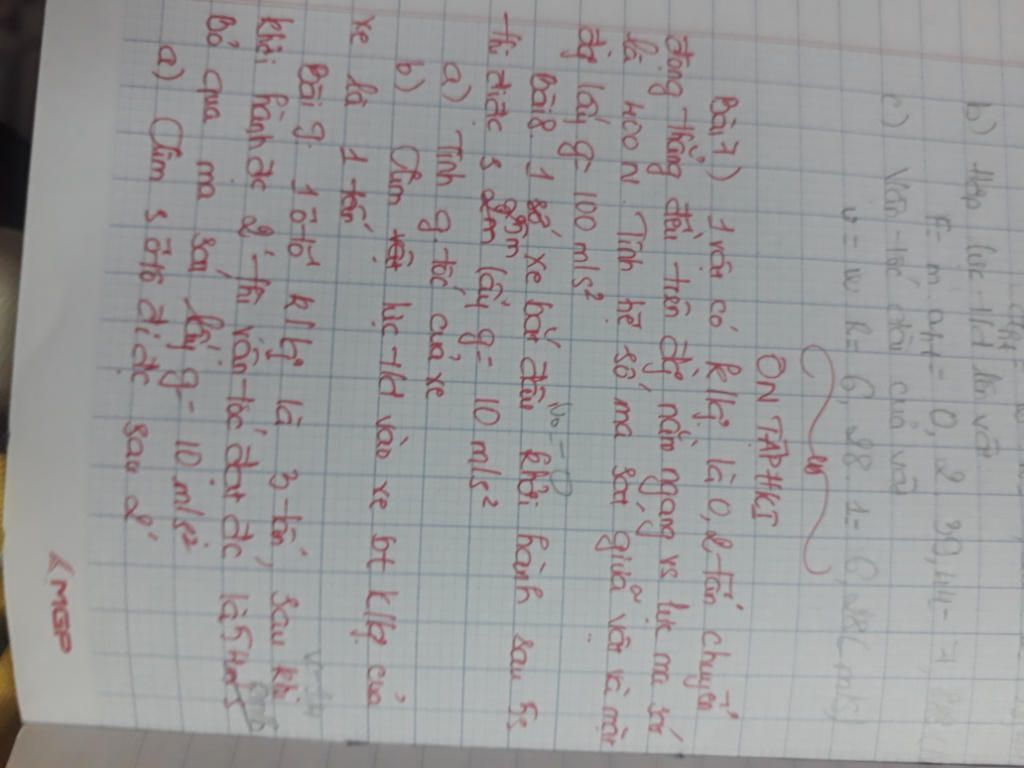 b) Hợp lực tđ lên vật
F = m . aht = 0,2 . 39,44 = 7,88
c) Vận tốc dài của vật
v = w R = 6,28 . 1 = 6,28 (m/s)
ÔN TẬP HKI
Bài 7) 1 vật có klg là 0,2 tấn chuyển
động thẳng đều trên đg nằm ngang vs lực ma sát
là 400 N. Tính hệ số ma sát giữa vật và mặt
đg lấy g 100 m/s²
v₀ = 0
Bài 8 1 số xe bắt đầu khởi hành sau 5s
thì đi đc s 25m lấy g = 10 m/s²
a) Tính g tốc của xe
b) Tìm lực tđ vào xe bt klg của
xe là 1 tấn
Bài 9. 1 ô tô klg là 3 tấn, sau khi
khởi hành đc 2' thì vận tốc đạt đc là
Bỏ qua ma sát lấy g = 10 m/s²
a) Tìm s ô tô đi đc sau 2'
MGP